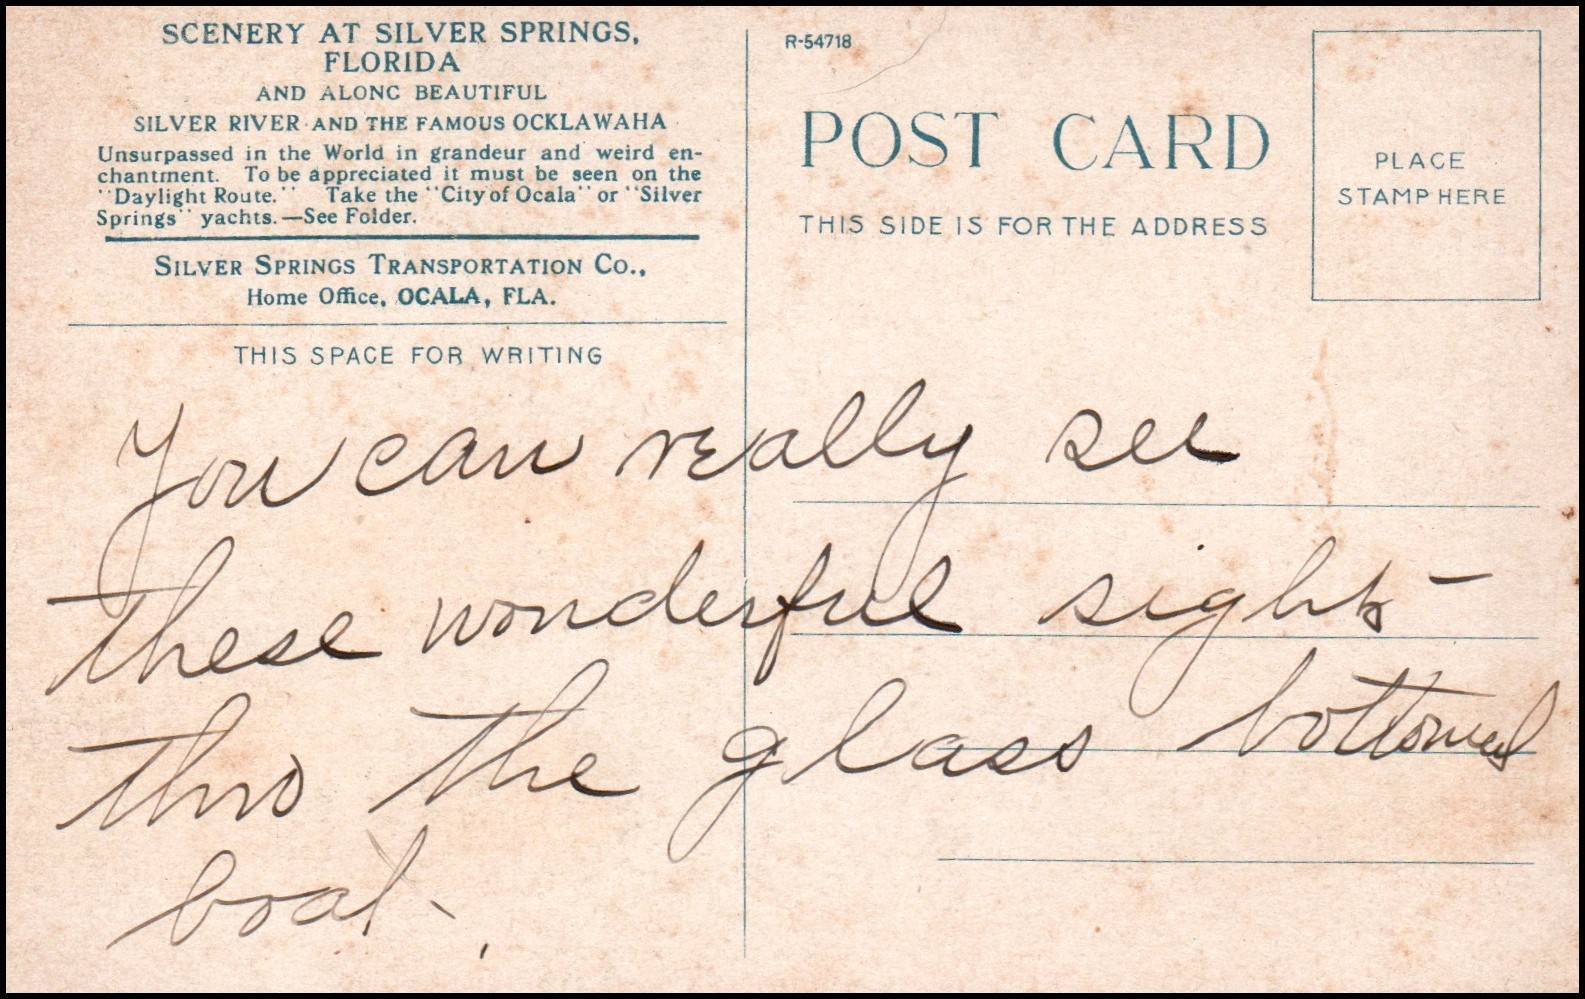 SCENERY AT SILVER SPRINGS,
FLORIDA
AND ALONG BEAUTIFUL
SILVER RIVER AND THE FAMOUS OCKLAWAHA
Unsurpassed in the World in grandeur and weird en-
chantment. To be appreciated it must be seen on the
"Daylight Route." Take the "City of Ocala" or "Silver
Springs" yachts.—See Folder.
SILVER SPRINGS TRANSPORTATION CO.,
Home Office, OCALA, FLA.
THIS SPACE FOR WRITING
R-54718
POST CARD
THIS SIDE IS FOR THE ADDRESS
PLACE
STAMP HERE
You can really see
these wonderful sights –
thro the glass bottomed
boat.